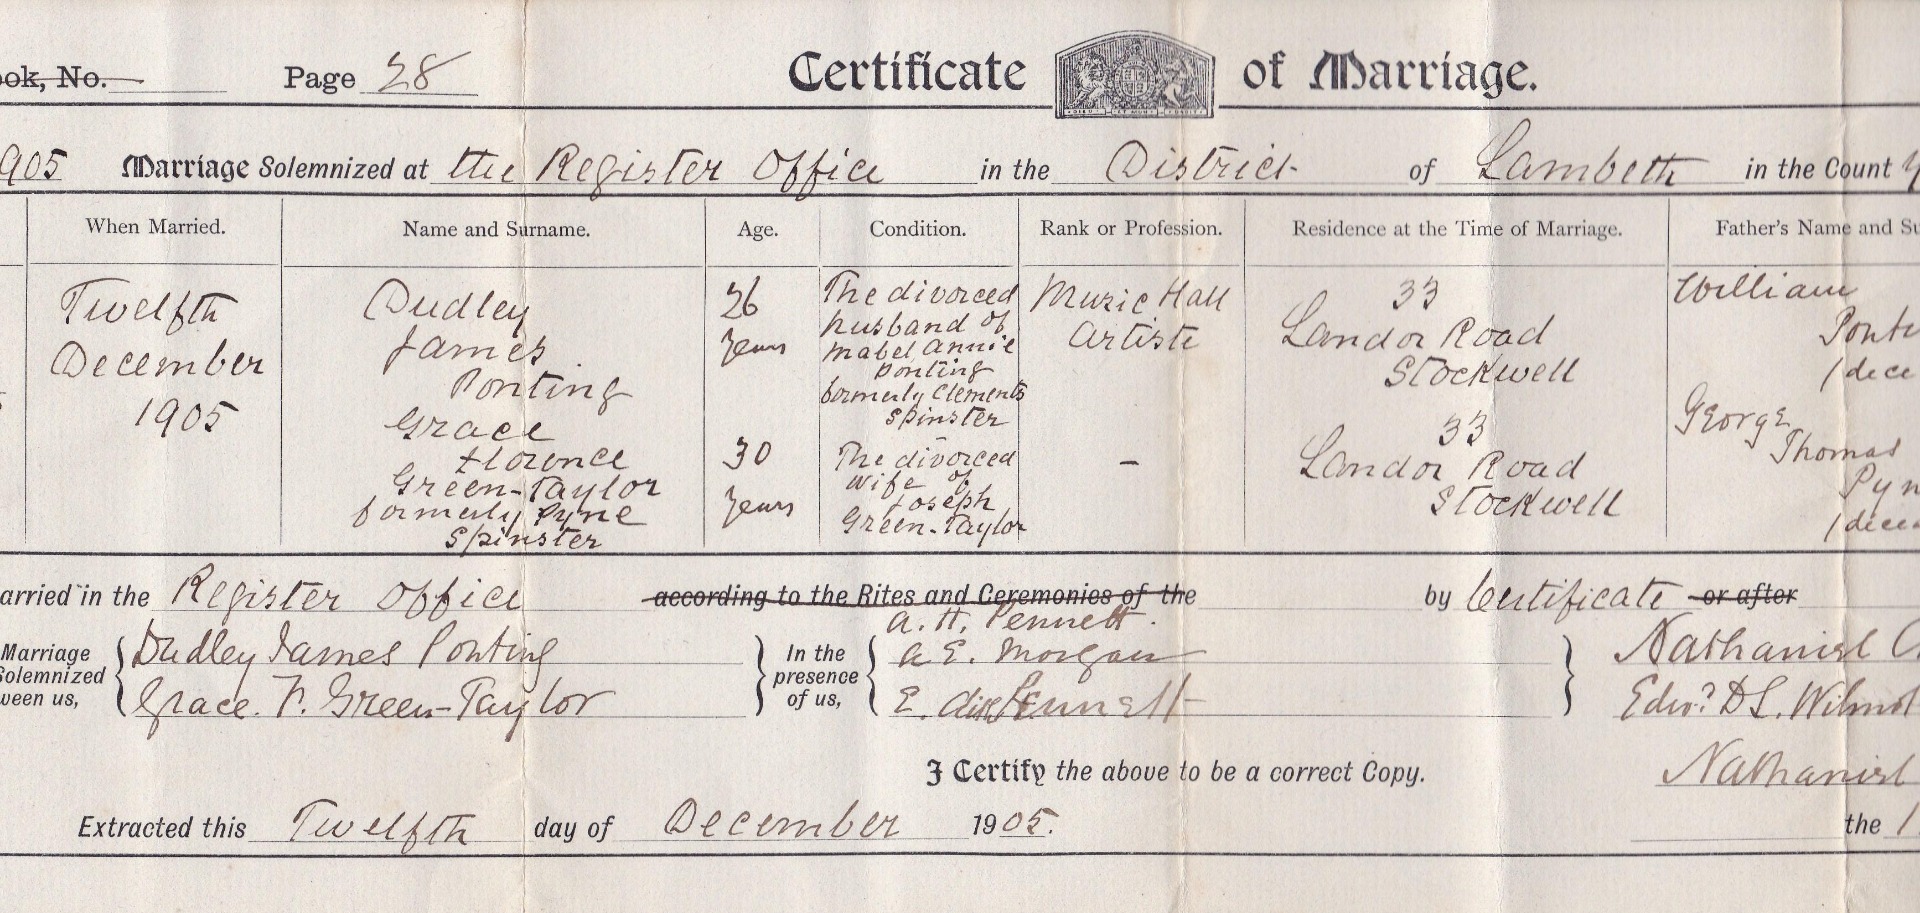 ook, No. Page 28 Certificate of Marriage.
905 Marriage Solemnized at the Register Office in the District of Lambeth in the Count
When Married. Name and Surname. Age. Condition. Rank or Profession. Residence at the Time of Marriage. Father's Name and Su
Twelfth
December
1905
Dudley
James
Ponting
26
years
The divorced
husband of
Mabel Annie
Ponting
formerly Clements
Spinster
Music Hall
Artiste
33
Landor Road
Stockwell
William
Ponti
(dece
Grace
Florence
Green-Taylor
formerly Pyne
Spinster
30
years
The divorced
wife of
Joseph
Green-Taylor
–
33
Landor Road
Stockwell
George
Thomas
Pyn
(decea
arried in the Register Office according to the Rites and Ceremonies of the by Certificate or after
Marriage
Solemnized
ween us,
Dudley James Ponting
Grace. F. Green-Taylor
In the
presence
of us,
A. H. Pennett.
A E. Morgan
E. Pennett
Nathaniel
Edwd D L. Wilmot
I Certify the above to be a correct Copy.
Nathaniel
Extracted this Twelfth day of December 1905. the 1